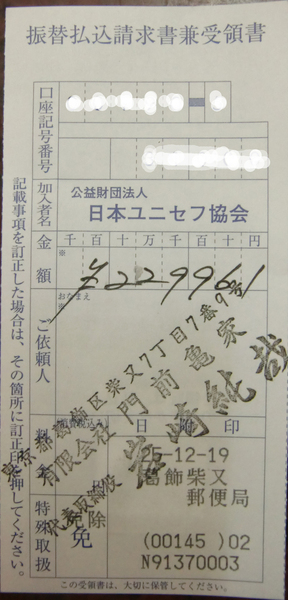 振替払込請求書兼受領書
口座記号番号
加入者名
公益財団法人
日本ユニセフ協会
金額
千百十万千百十円
※
¥229961
おなまえ
ご依頼人
東京都葛飾区柴又7丁目7番9号
有限会社門前亀家
代表取締役 岩崎純哉
料金
(消費税込み)
免除
日附印
25-12-19
葛飾柴又
郵便局
特殊取扱
(00145)02
N91370003
記載事項を訂正した場合は、その箇所に訂正印を押してください。
この受領書は、大切に保管してください。